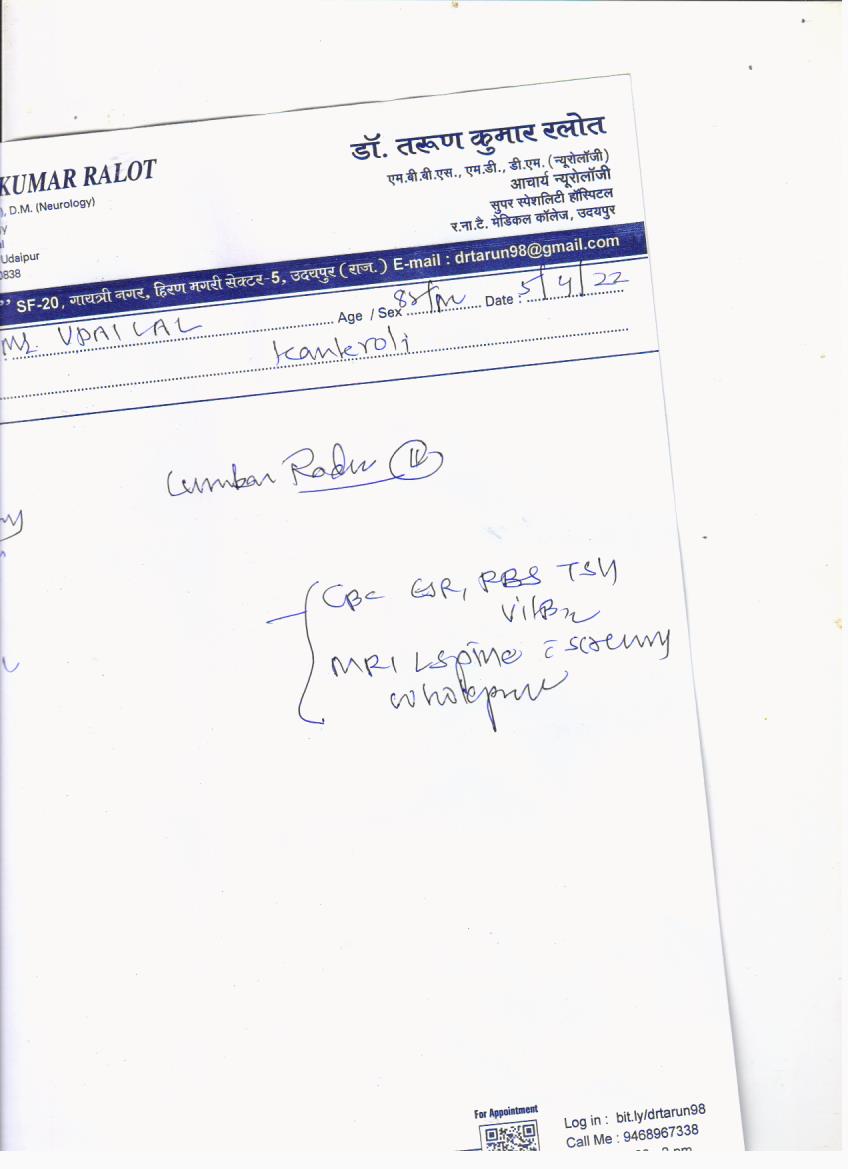 डॉ. तरूण कुमार रलोत
KUMAR RALOT
एम.बी.बी.एस., एम.डी., डी.एम. (न्यूरोलॉजी)
), D.M. (Neurology)
आचार्य न्यूरोलॉजी
सुपर स्पेशलिटी हॉस्पिटल
Udaipur
र.ना.टै. मेडिकल कॉलेज, उदयपुर
0838
" SF-20, गायत्री नगर, हिरण मगरी सेक्टर-5, उदयपुर (राज.) E-mail : drtarun98@gmail.com
UDAILAL Age / Sex 88/M Date : 5/4/22
Kankroli
Lumbar Radic
CBC ESR, RBS TSH
VitB12
MRI LSpine c screening
whole spine
For Appointment
Log in : bit.ly/drtarun98
Call Me : 9468967338